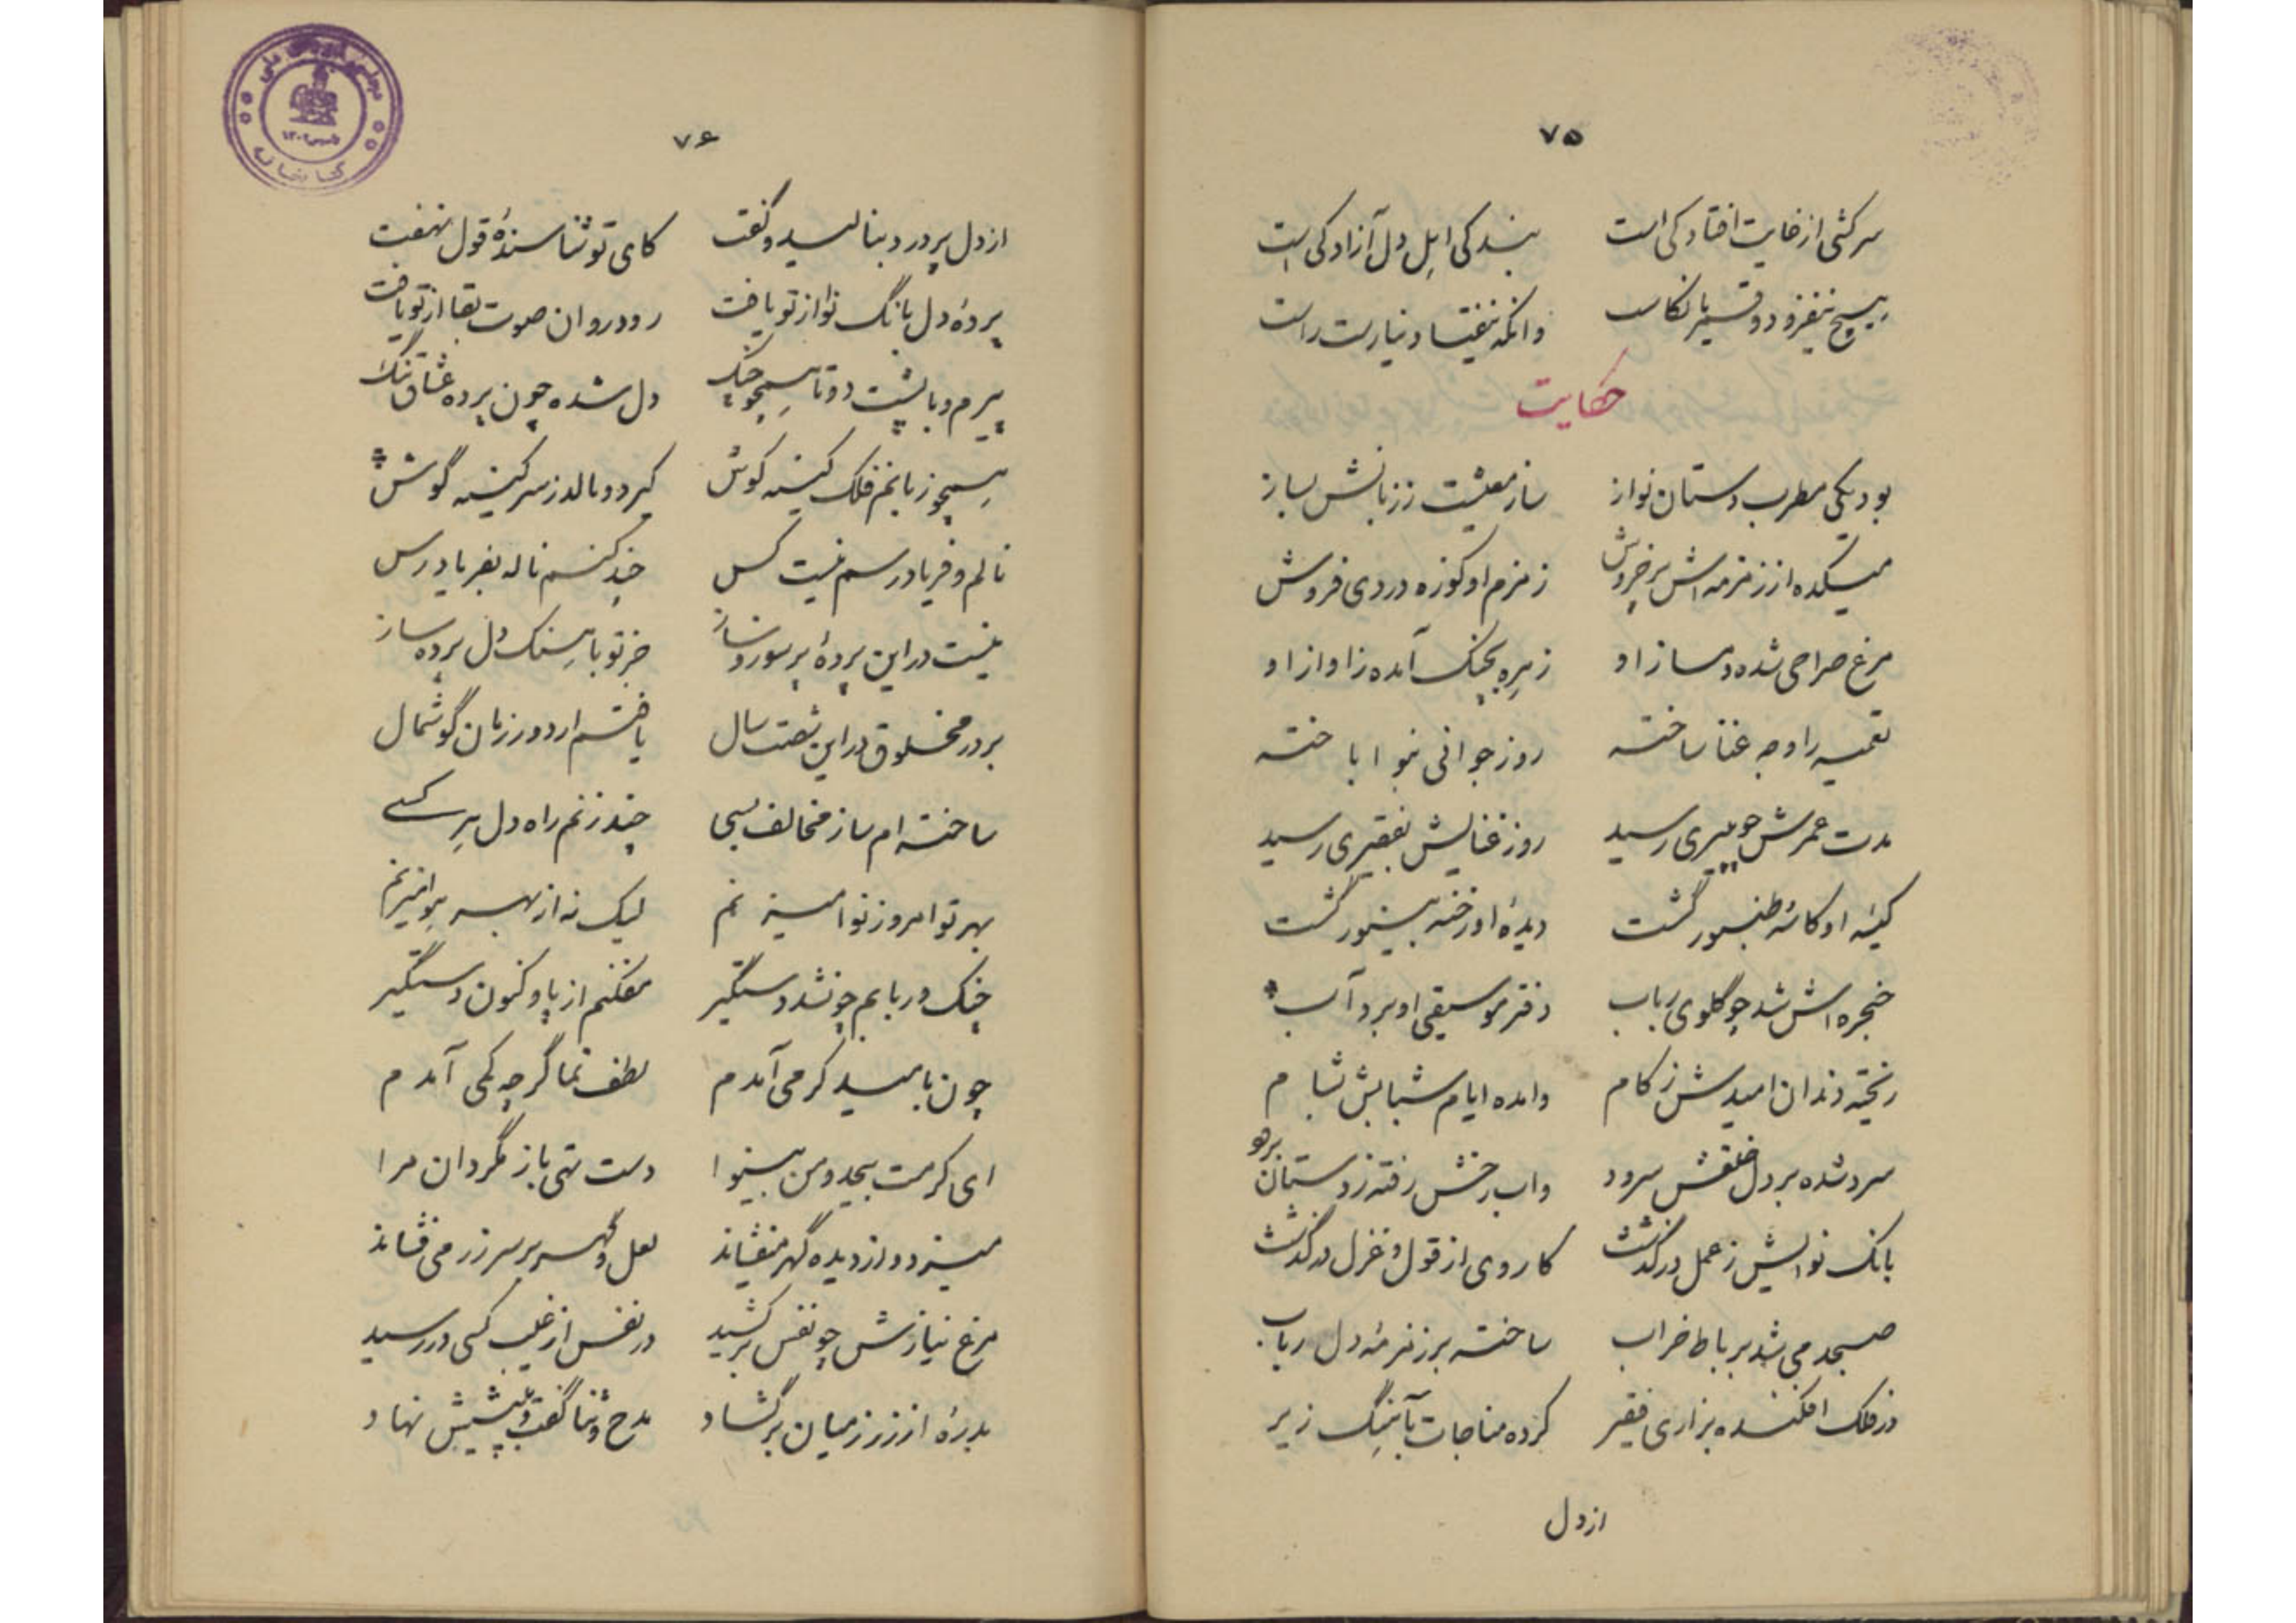 ۷۵
سرکشی از غایت افتادکی است بندکی اهل دل آزادکی است
هیچ نیفزود و قسیر بانکاست وانکه نیفتاد نیارست راست
حکایت
بود یکی مطرب دستان نواز ساز معیشت ز زبانش بساز
میکده از زمزمه اش پرخروش زمزم او کوزه دردی فروش
مرغ صراحی شده دمساز او زهره بچنک آمده ز اواز او
نغمه را وجه غنا ساخته روز جوانی بنوا باخته
مدت عمرش چو بپیری رسید روز غنایش بفقیری رسید
کیسه او کاسه طنبور گشت دیده او رخنه بینور گشت
حنجره اش شد چو گلوی رباب دفتر موسیقی او برد آب
ریخته دندان امیدش ز کام وامده ایام شبابش بشام
سرد شده بر دل خلقش سرود واب رخش رفته ز دستان برود
بانک نوایش ز عمل درگذشت کار وی از قول و غزل درگذشت
صبحدمی شد برباط خراب ساخته بر زمزمه دل رباب
در فلک افکنده بزاری فقیر کرده مناجات بآهنگ زیر
از دل
۷۶
از دل پر درد بنالید و گفت کای تو شناسنده قول نهفت
پردۀ دل بانگ نوا از تو یافت رود روان صوت بقا از تو یافت
پیرم و با پشت دوتا همچو چنک دل شده چون پرده عشاق تنک
همچو ربابم فلک کینه کوش گیرد و مالد ز سر کینه گوش
نالم و فریادرسم نیست کس چند کنم ناله بفریادرس
نیست در این پردۀ پر سوز و ساز جز تو باهنک دل پرده ساز
بر در مخلوق در این شصت سال یافتم از دور زمان گوشمال
ساخته ام ساز مخالف بسی چند زنم راه دل هر کسے
بهر تو امروز نوا میزنم لیک نه از بهر هوا میزنم
چنک و ربابم چو نشد دستگیر مفکنم از پا و کنون دستگیر
چون بامید کرمی آمدم لطف نما گرچه کمی آمدم
ای کرمت بیحد و من بینوا دست تهی باز مگردان مرا
میزد و از دیده گهر میفشاند لعل و گهر بر سر زر می فشاند
مرغ نیازش چو نفس برکشید در نفس از غیب کسی در رسید
بدرۀ از زر ز میان برگشاد مدح و ثنا گفت و بپیشش نهاد
کتابخانه